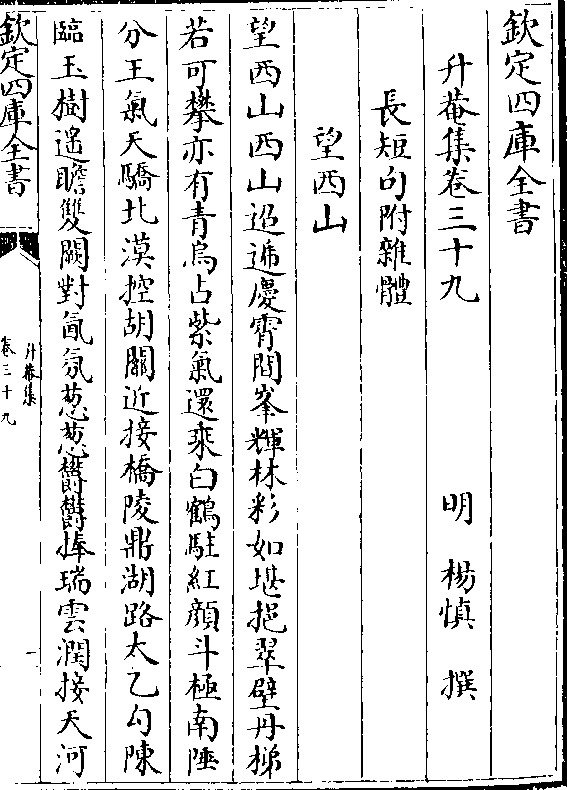 欽定四庫全書
升菴集卷三十九
明 楊慎 撰
長短句附雜體
望西山
望西山西山迢遞慶霄間峯輝林彩如堪挹翠壁丹梯
若可攀亦有青烏占紫氣還乘白鶴駐紅顔斗極南陲
分王氣天驕北漠控胡關近接橋陵鼎湖路太乙勾陳
臨玉樹遙瞻雙闕對氤氛葱葱欝欝捧瑞雲潤接天河
欽定四庫全書
升菴集
卷三十九
一